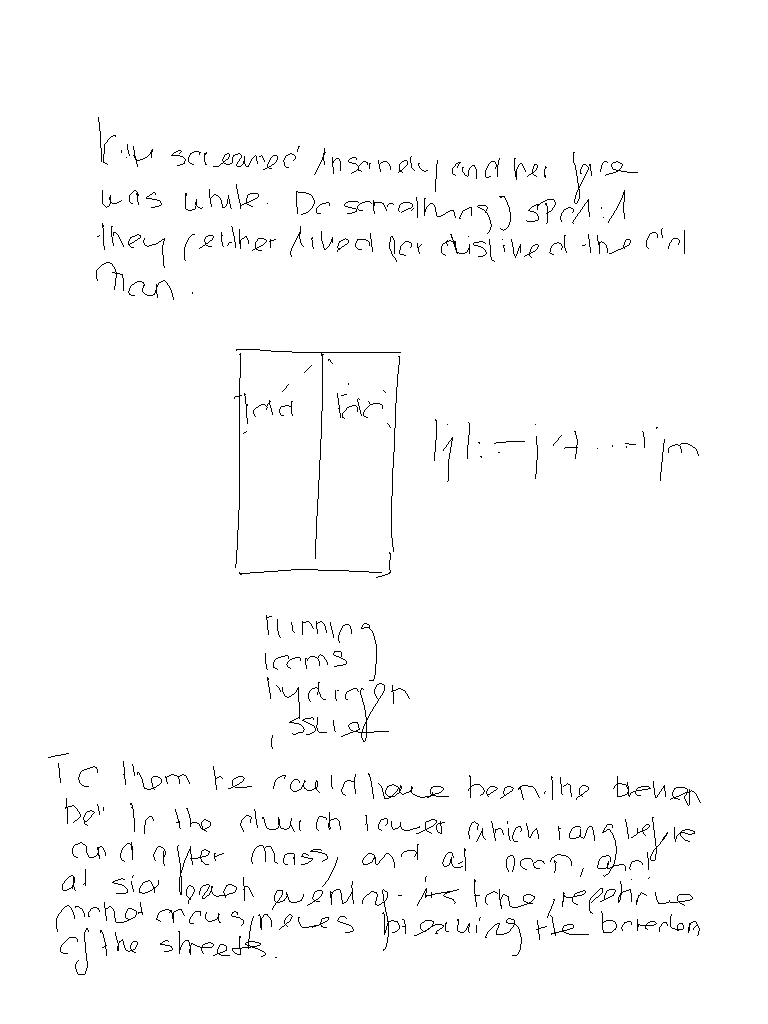 Kitty screamed insanely and her face
was white. Do something
they neither liked nor disliked the old
man.
running
teams
hydrogen
issue
To them he could have been the broken
bell in the church tower which rang before
and after Mass, and at noon, and
at six each evening - its tone, repetitive
monotonous, never breaking the boredom
of the streets.